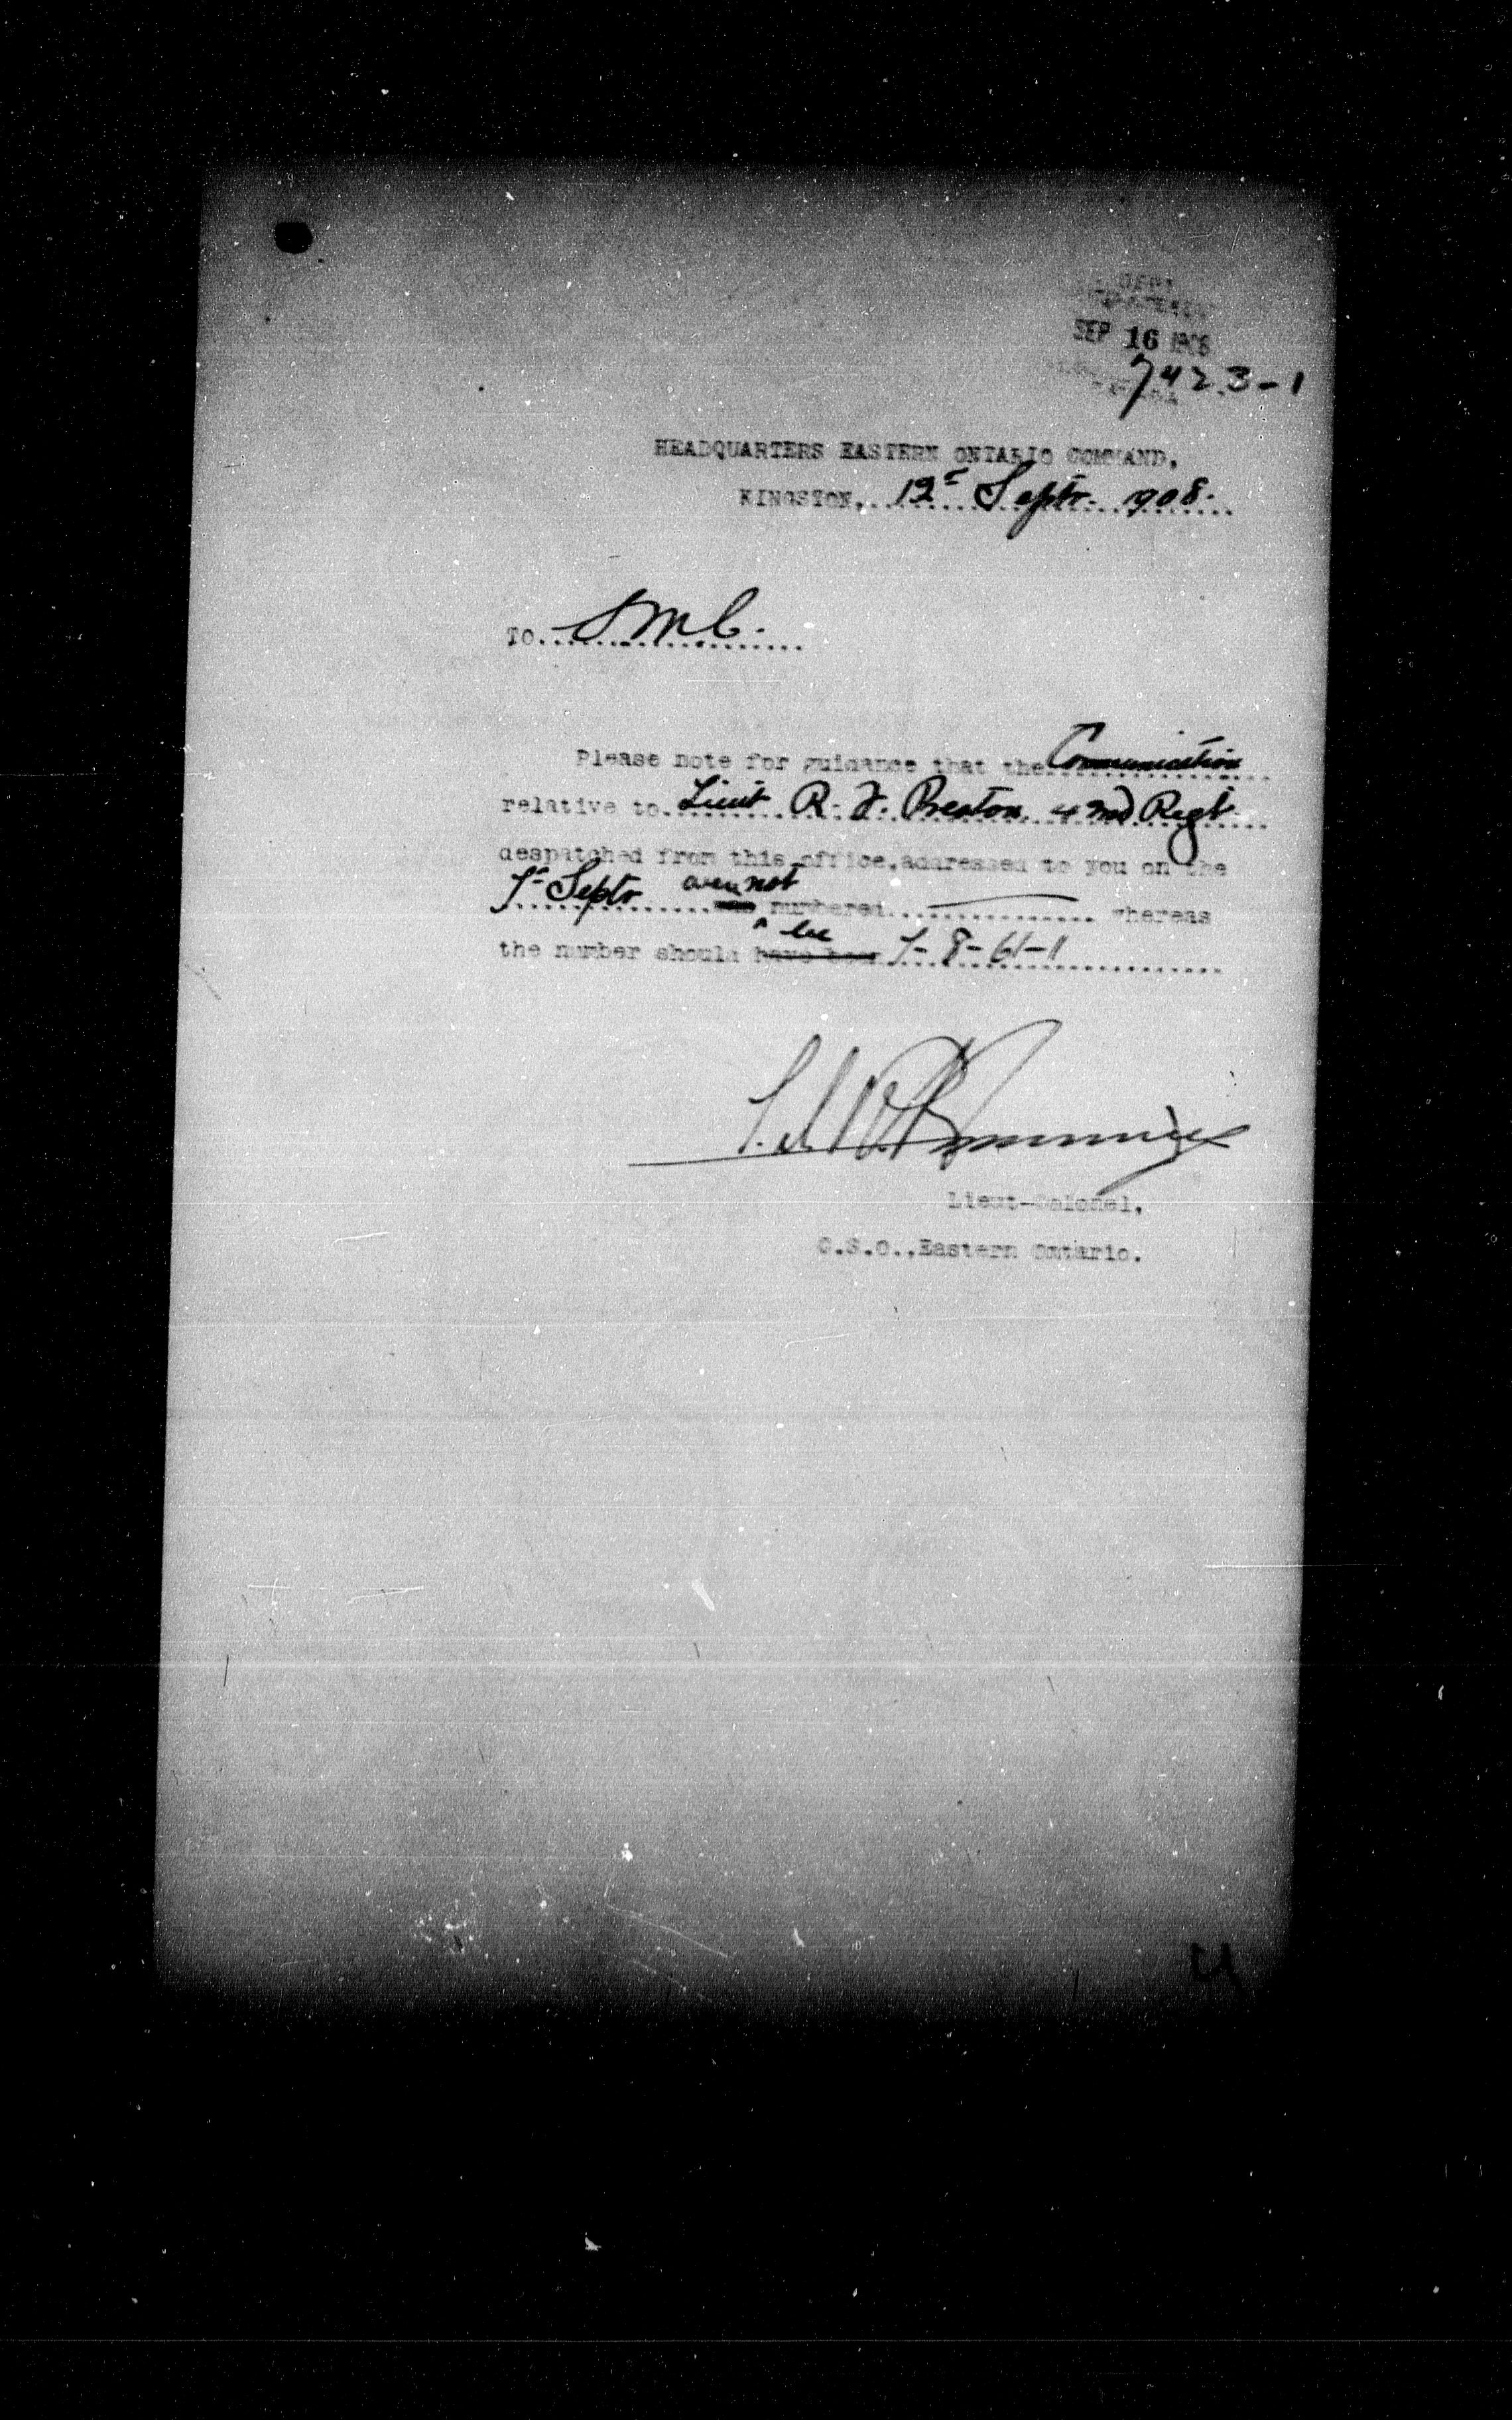 SEP 16 1908
7423-1
HEADQUARTERS EASTERN ONTARIO COMMAND,
KINGSTON, 12th Septr. 1908.
TO. SMC.
Please note for guidance that the Communication
relative to Lieut R. F. Preston, 42nd Regt
despatched from this office, addressed to you on the
not
7th Septr numbered whereas
be
the number should have been 7-8-61-1
Lieut-Colonel,
C.S.O., Eastern Ontario.